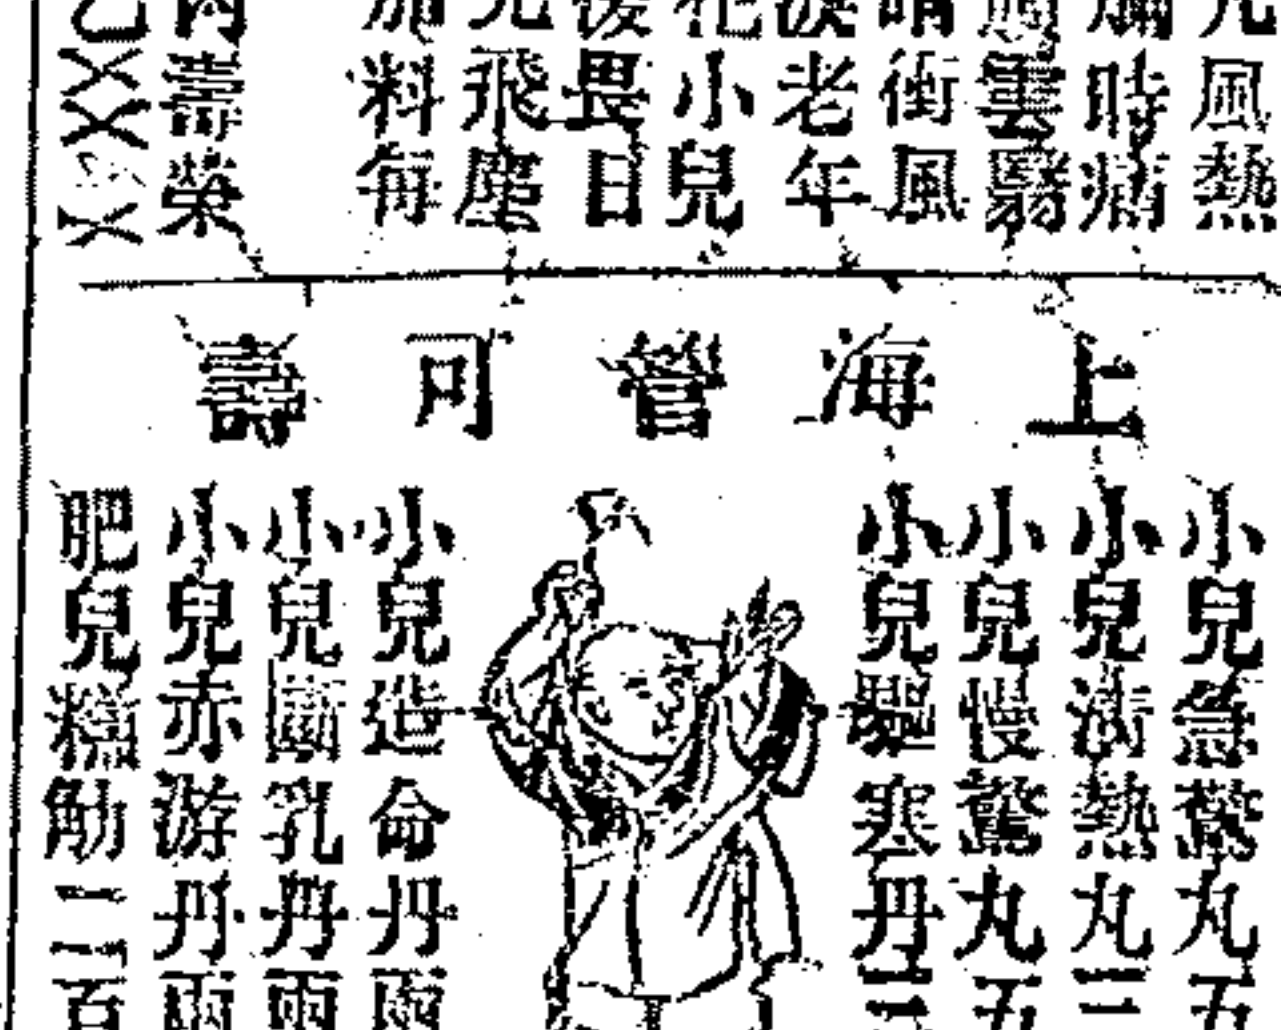 風熱
時痛
雲翳
衝風
老年
小兒
畏日
飛塵
料每
壽榮
上海管可壽
小兒急驚丸五
小兒清熱丸三
小兒慢驚丸五
小兒驅寒丹三
小兒造命丹兩
小兒斷乳丹兩
小兒赤游丹兩
肥兒糕觔二百